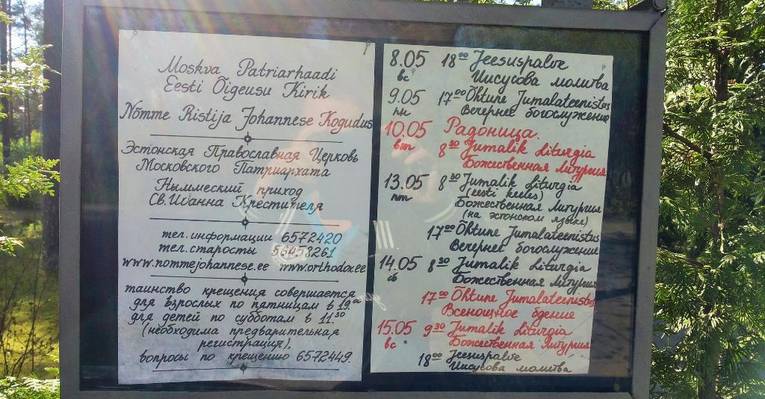 Moskva Patriarhaadi
Eesti Õigeusu Kirik
Nõmme Ristija Johannese Kogudus
Эстонская Православная Церковь
Московского Патриархата
Ныммеский приход
Св. Иоанна Крестителя
тел. информации 6572420
тел. старосты 56058261
www.nommejohannese.ee www.orthodox.ee
таинство крещения совершается
для взрослых по пятницам в 19.00
для детей по субботам в 11.30
(необходима предварительная
регистрация),
вопросы по крещению 6572449.
8.05 18 00 Jeesuspalve
вс Иисусова молитва
9.05 17 00 Õhtune Jumalateenistus
пн Вечернее богослужение
10.05 Радоница.
вт 8 30 Jumalik Liturgia
Божественная Литургия
13.05 8 30 Jumalik Liturgia
пт (eesti keeles)
Божественная Литургия
(на эстонском языке)
17 00 Õhtune Jumalateenistus
Вечернее богослужение
14.05 8 30 Jumalik Liturgia
сб Божественная Литургия
17 00 Õhtune Jumalateenistus
Всенощное бдение
15.05 9 30 Jumalik Liturgia
вс Божественная Литургия
18 00 Jeesuspalve
Иисусова молитва